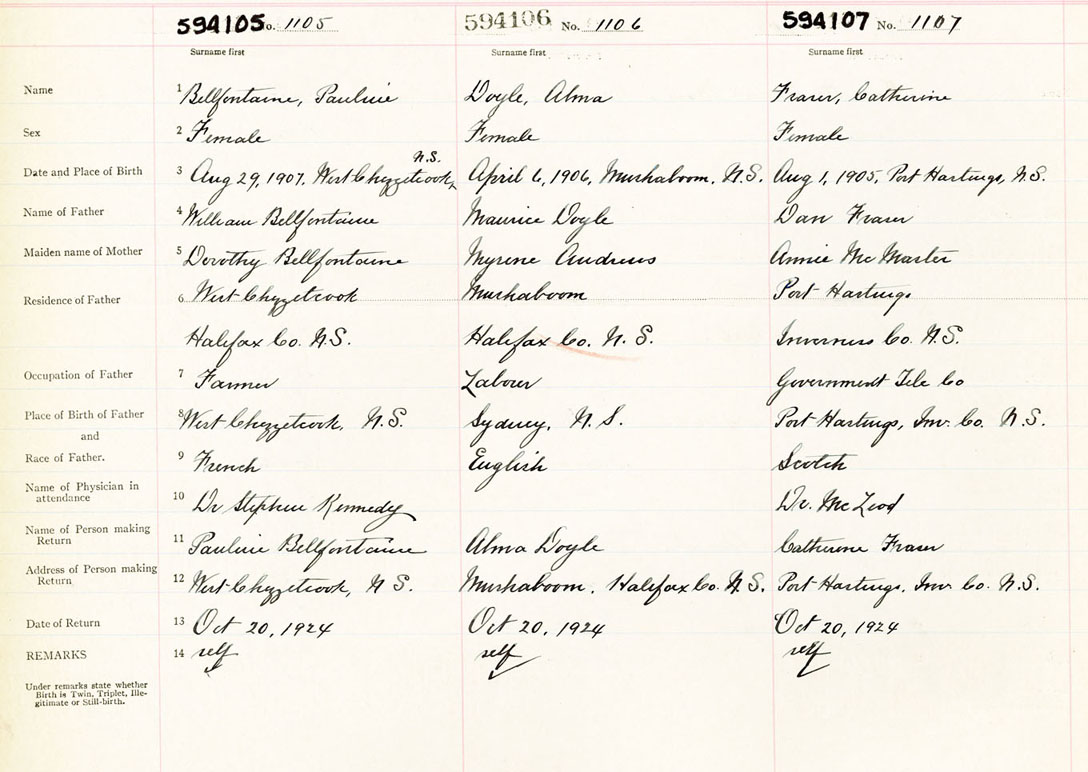 594105 No. 1105 594106 No. 1106 594107 No. 1107
Surname first Surname first Surname first
Name 1 Bellfontaine, Pauline Doyle, Alma Fraser, Catherine
Sex 2 Female Female Female
N.S.
Date and Place of Birth 3 Aug 29, 1907, West Chezzetcook, April 6, 1906, Mushaboom, N.S. Aug 1, 1905, Port Hastings, N.S.
Name of Father 4 William Bellfontaine Maurice Doyle Dan Fraser
Maiden name of Mother 5 Dorothy Bellfontaine Myrene Andrews Annie McMaster
Residence of Father 6 West Chezzetcook Mushaboom Port Hastings
Halifax Co. N.S. Halifax Co. N.S. Inverness Co. N.S.
Occupation of Father 7 Farmer Labour Government Tele Co
Place of Birth of Father 8 West Chezzetcook, N.S. Sydney, N.S. Port Hastings, Inv. Co. N.S.
and
Race of Father. 9 French English Scotch
Name of Physician in
attendance 10 Dr Stephen Kennedy Dr. McLeod
Name of Person making
Return 11 Pauline Bellfontaine Alma Doyle Catherine Fraser
Address of Person making
Return 12 West Chezzetcook, N S. Mushaboom, Halifax Co. N.S. Port Hastings, Inv. Co. N.S.
Date of Return 13 Oct 20, 1924 Oct 20, 1924 Oct 20, 1924
REMARKS 14 self self self
Under remarks state whether
Birth is Twin, Triplet, Ille-
gitimate or Still-birth.